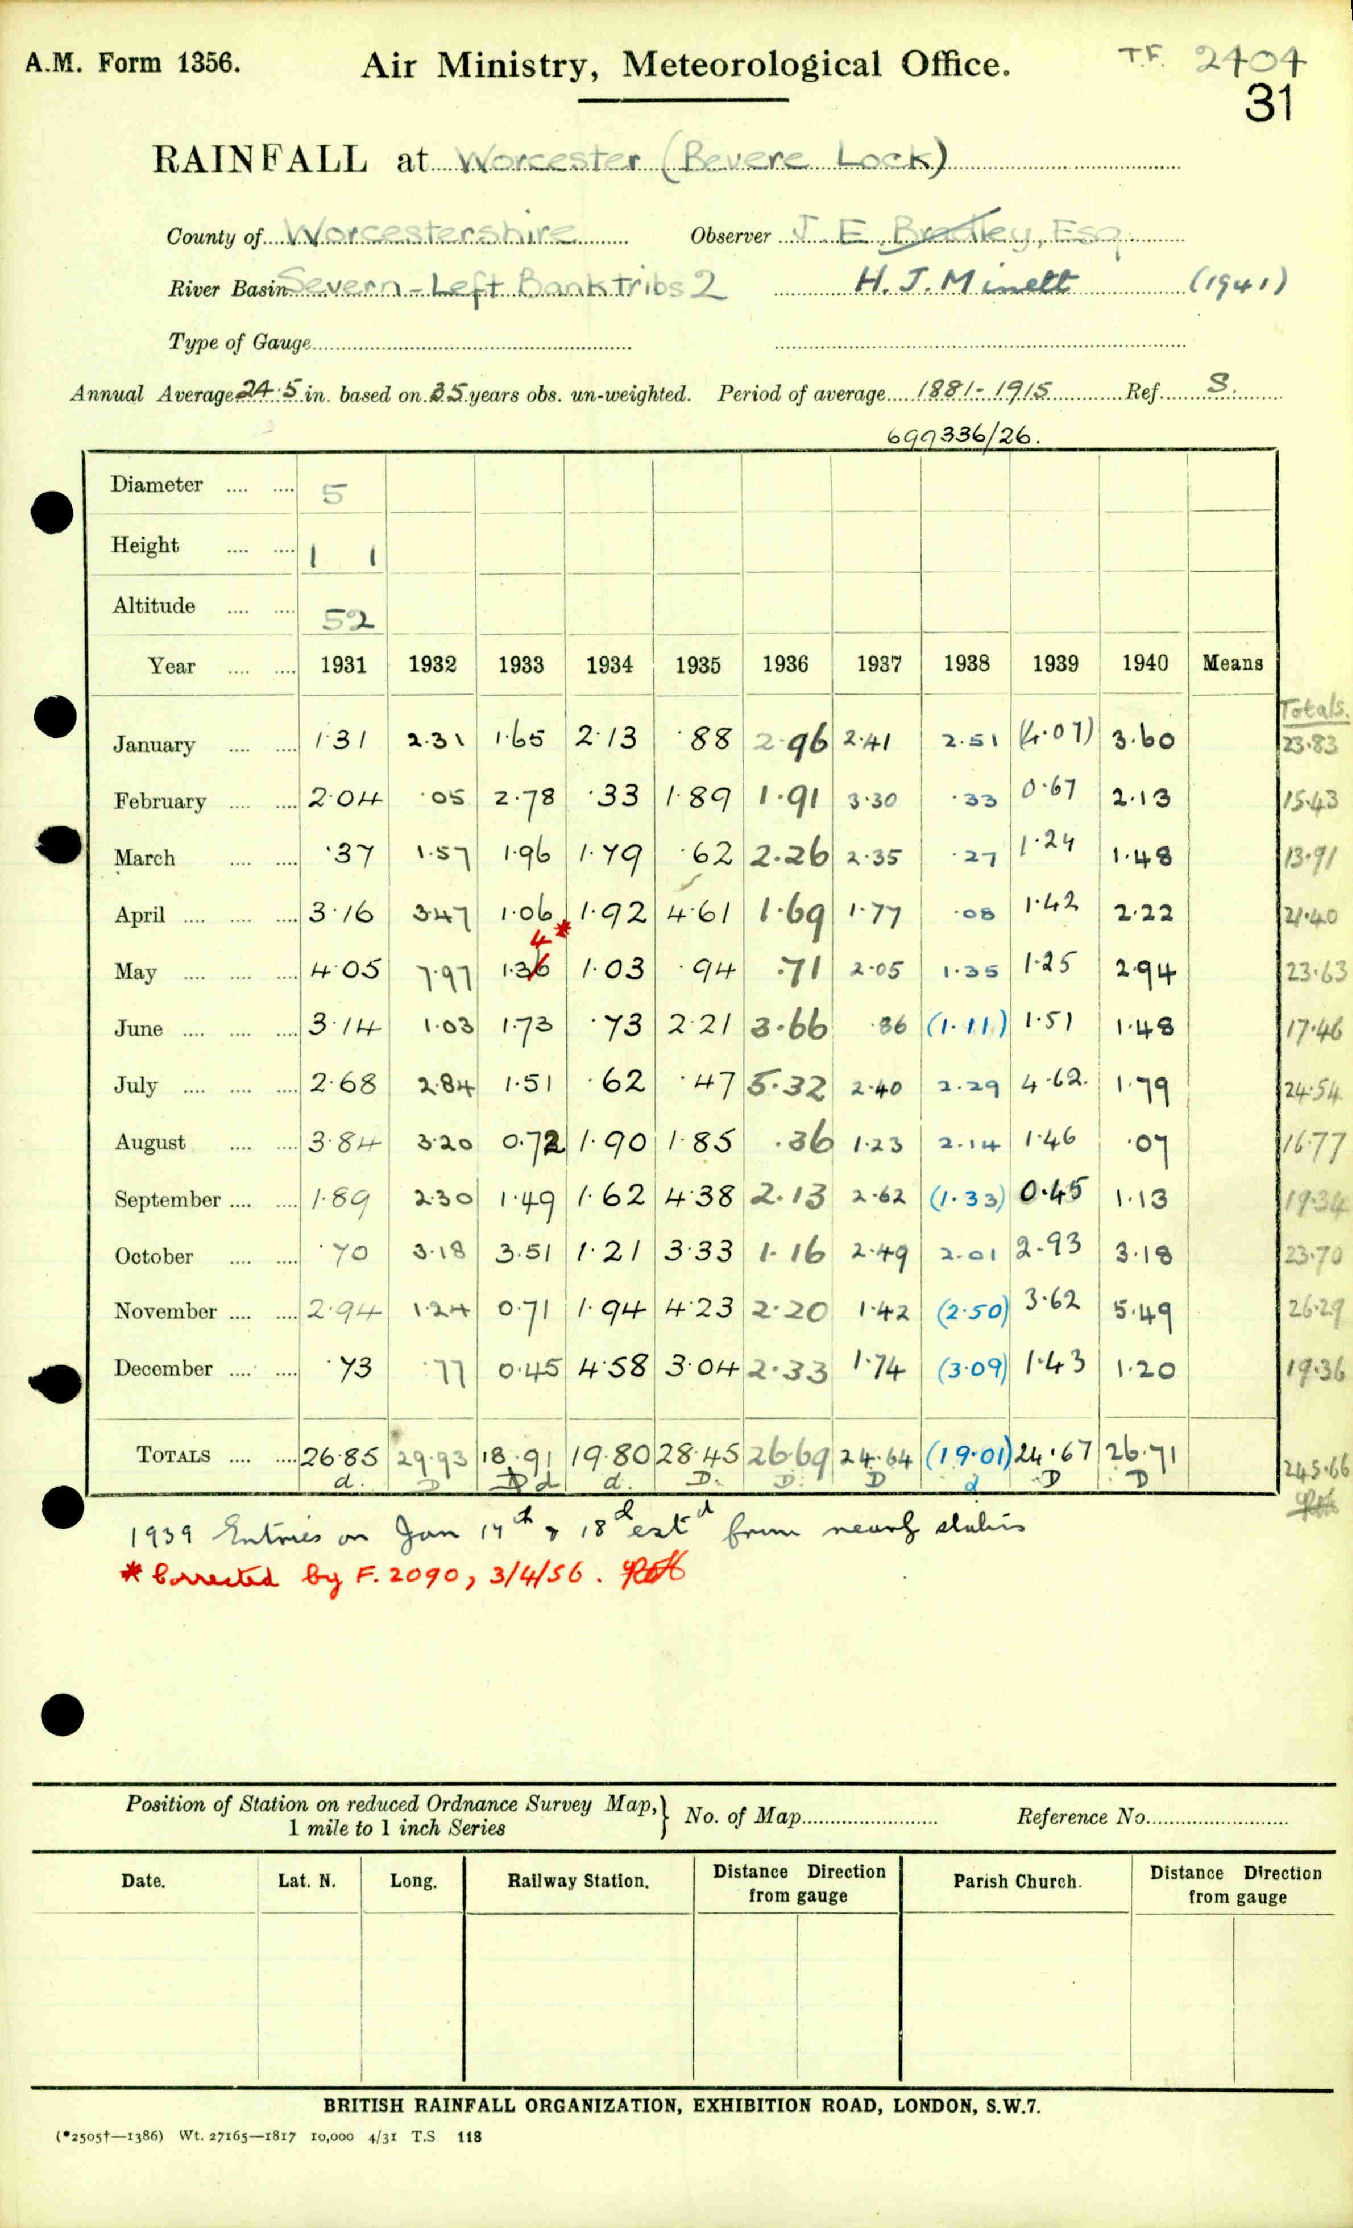 A.M. Form 1356. Air Ministry, Meteorological Office. T.F. 2404
31
RAINFALL at Worcester (Bevere Lock)
County of Worcestershire Observer J. E. Bradley, Esq.
River Basin Severn - Left Bank Tribs 2 H. J. Minett (1941)
Type of Gauge
Annual Average 24.5 in. based on 35 years obs. un-weighted. Period of average 1881-1915 Ref. S.
699336/26.
Diameter .... .... 5
Height .... .... 1 1
Altitude .... .... 52
Year .... .... 1931 1932 1933 1934 1935 1936 1937 1938 1939 1940 Means
Totals.
January .... .... 1.31 2.31 1.65 2.13 .88 2.96 2.41 2.51 (4.07) 3.60 23.83
February .... .... 2.04 .05 2.78 .33 1.89 1.91 3.30 .33 0.67 2.13 15.43
March .... .... .37 1.57 1.96 1.79 .62 2.26 2.35 .27 1.24 1.48 13.91
April .... .... .... 3.16 3.47 1.06 1.92 4.61 1.69 1.77 .08 1.42 2.22 21.40
4 *
May .... .... .... 4.05 7.97 1.36 1.03 .94 .71 2.05 1.35 1.25 2.94 23.63
June .... .... .... 3.14 1.03 1.73 .73 2.21 3.66 .86 (1.11) 1.51 1.48 17.46
July .... .... .... 2.68 2.84 1.51 .62 .47 5.32 2.40 2.29 4.62. 1.79 24.54
August .... .... 3.84 3.20 0.72 1.90 1.85 .36 1.23 2.14 1.46 .07 16.77
September .... .... 1.89 2.30 1.49 1.62 4.38 2.13 2.62 (1.33) 0.45 1.13 19.34
October .... .... .70 3.18 3.51 1.21 3.33 1.16 2.49 2.01 2.93 3.18 23.70
November .... .... 2.94 1.24 0.71 1.94 4.23 2.20 1.42 (2.50) 3.62 5.49 26.29
December .... .... .73 .77 0.45 4.58 3.04 2.33 1.74 (3.09) 1.43 1.20 19.36
TOTALS .... .... 26.85 29.93 18.91 19.80 28.45 26.69 24.64 (19.01) 24.67 26.71 245.66
d. D D d d. D. D. D d D D
1939 Entries on Jan 17th & 18th estd from nearby stations
* Corrected by F. 2090, 3/4/56.
Position of Station on reduced Ordnance Survey Map,} No. of Map Reference No.
1 mile to 1 inch Series
Date. Lat. N. Long. Railway Station. Distance Direction from gauge Parish Church. Distance Direction from gauge
BRITISH RAINFALL ORGANIZATION, EXHIBITION ROAD, LONDON, S.W.7.
(*2505†—1386) Wt. 27165—1817 10,000 4/31 T.S 118